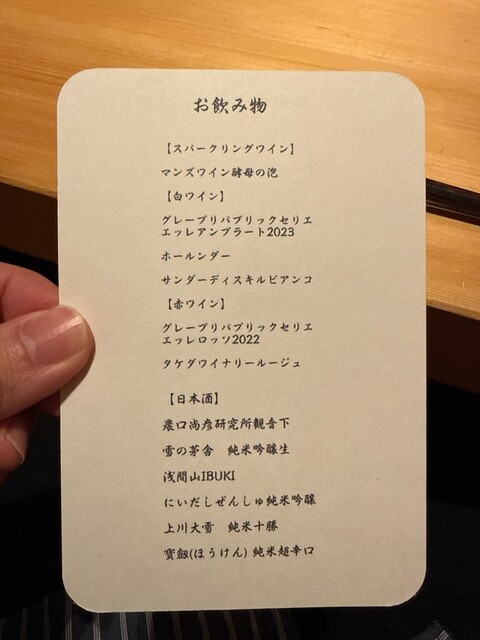 お飲み物
【スパークリングワイン】
マンズワイン酵母の泡
【白ワイン】
グレープリパブリックセリエ
エッレアンブラート2023
ホールンダー
サンダーディスキルビアンコ
【赤ワイン】
グレープリパブリックセリエ
エッレロッソ2022
タケダワイナリールージュ
【日本酒】
農口尚彦研究所観音下
雪の茅舎 純米吟醸生
浅間山IBUKI
にいだしぜんしゅ純米吟醸
上川大雪 純米十勝
寳劔(ほうけん) 純米超辛口